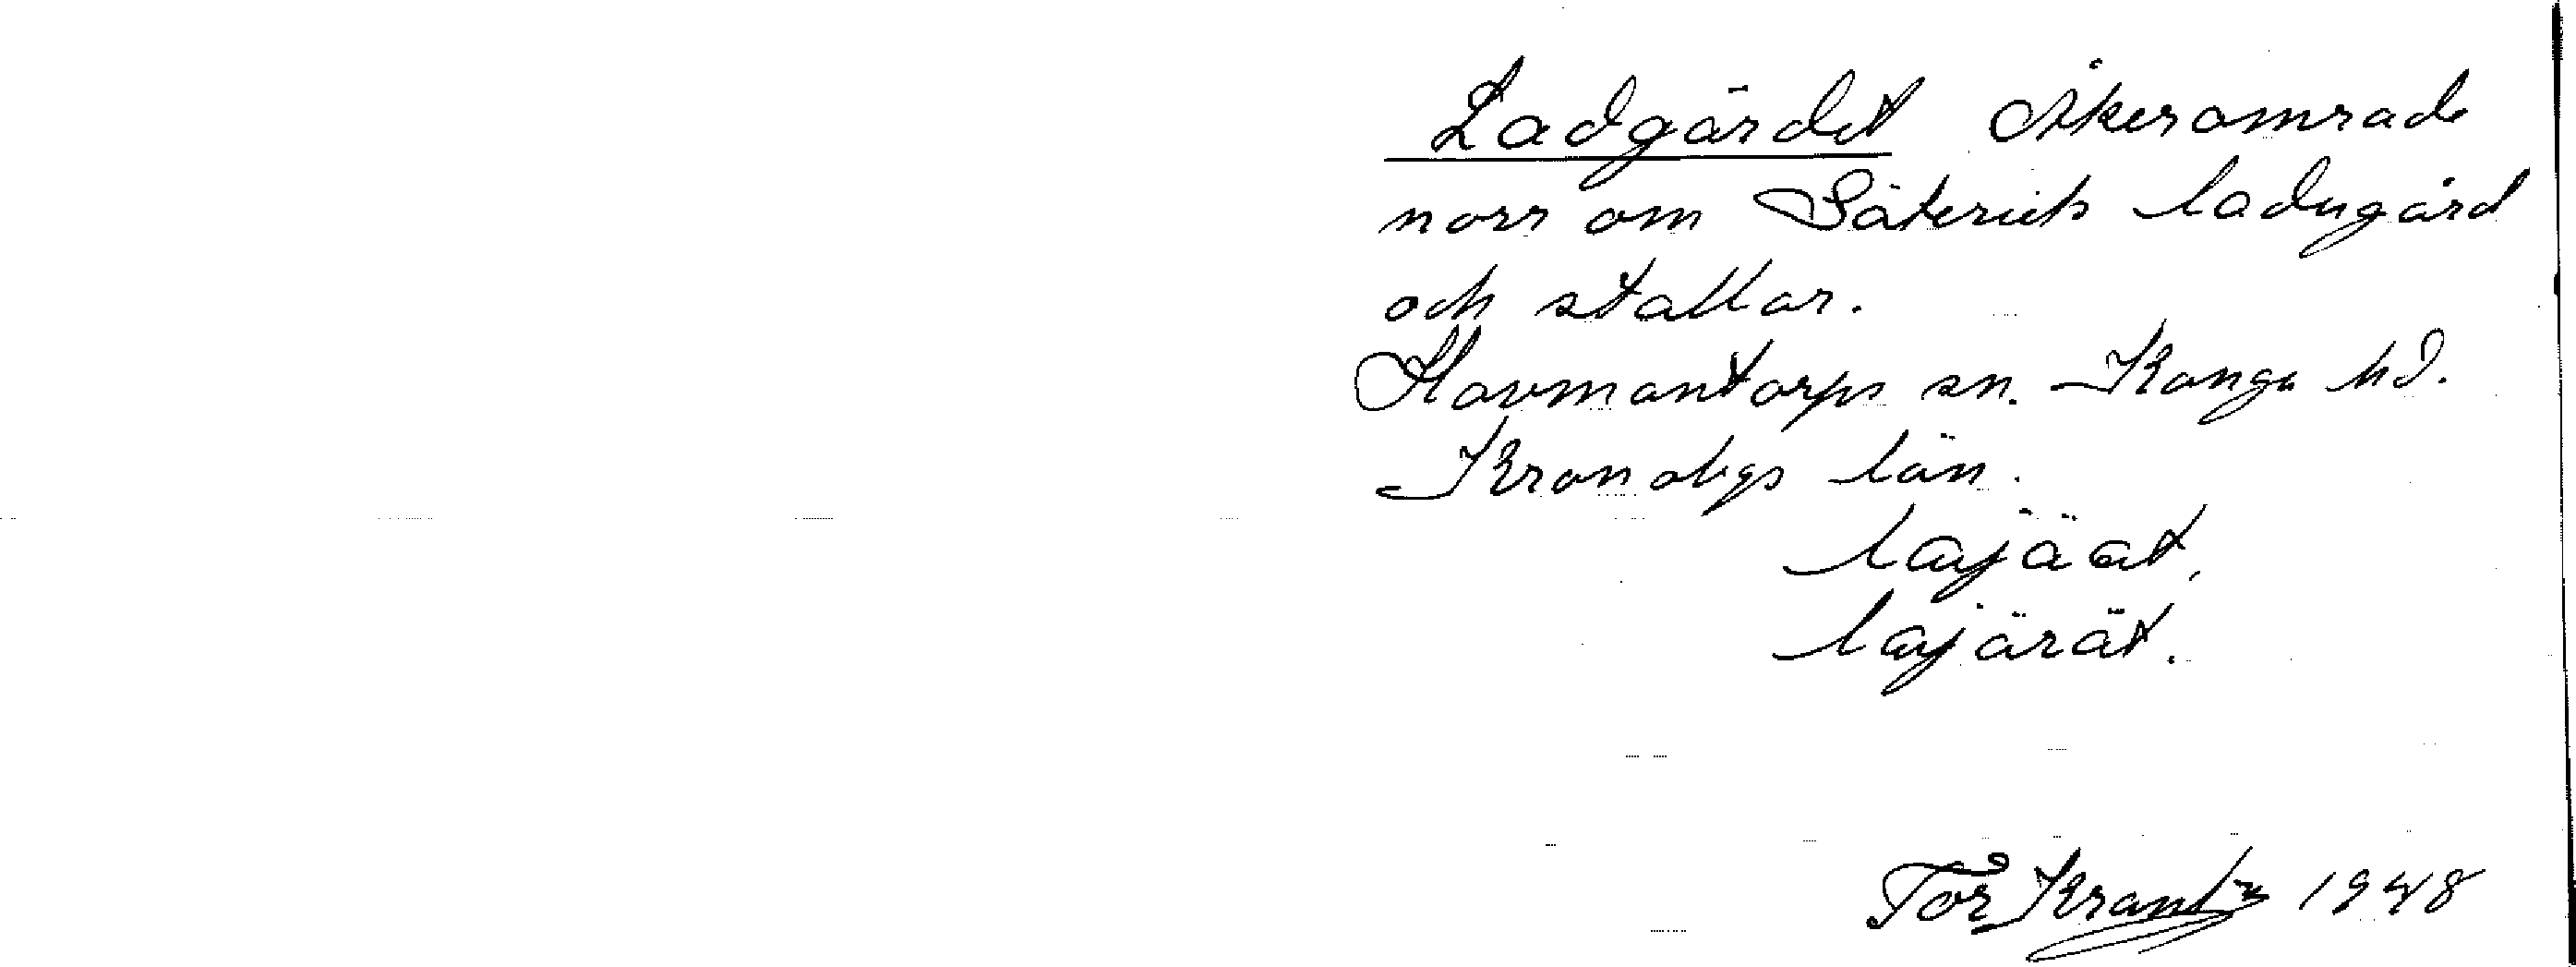 Ladgärdet Åkerområde
norr om Säteriets ladugård
och stallar.
Hovmantorps sn. Konga hd.
Kronobgs län.
lajäat,
lajärät.
Tor Krantz 1948